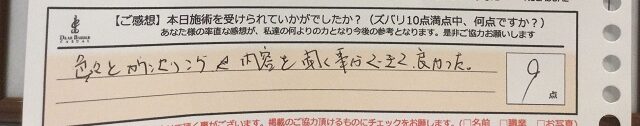 【ご感想】本日施術を受けられていかがでしたか？（ズバリ10点満点中、何点ですか？）
あなた様の率直な感想が、私達の何よりの力となり今後の参考となります。是非ご協力お願いします
色々とカウンセリングで内容を聞く事ができて良かった。
9
点
掲載のご協力頂けるものにチェックをお願いします。(□名前 □職業 □お写真)